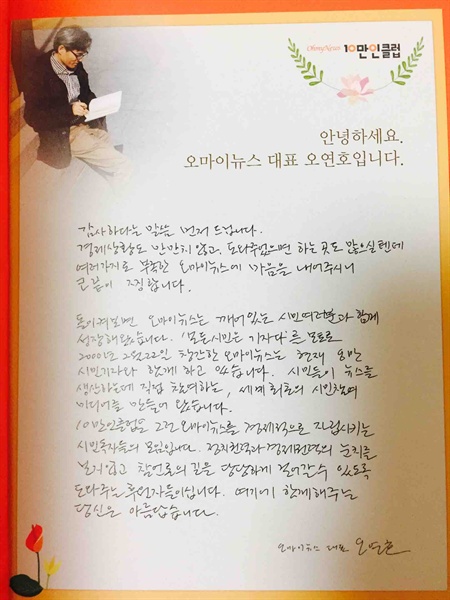 OhmyNews 10만인클럽
안녕하세요.
오마이뉴스 대표 오연호입니다.
감사하다는 말씀 먼저 드립니다.
경제상황도 만만치 않고, 도와주었으면 하는 곳도 많으실텐데
여러가지로 부족한 오마이뉴스에 마음을 내어주시니
큰 힘이 됩니다.
돌이켜보면 오마이뉴스는 깨어있는 시민여러분과 함께
성장해왔습니다. '모든시민은 기자다'를 모토로
2000년 2월 22일 창간한 오마이뉴스는 현재
시민기자와 함께 하고 있습니다. 시민들이 뉴스를
생산하는데 직접 참여하는, 세계최초의 시민참여
미디어를 만들어 왔습니다.
10만인클럽은 그런 오마이뉴스를 경제적으로 자립시키는
시민독자들의 모임입니다. 정치권력과 경제권력의 눈치를
보지않고 참언론의 길을 당당하게 걸어갈 수 있도록
도와주는 후원자들이십니다. 여기에 함께해주는
당신은 아름답습니다.
오마이뉴스 대표 오연호